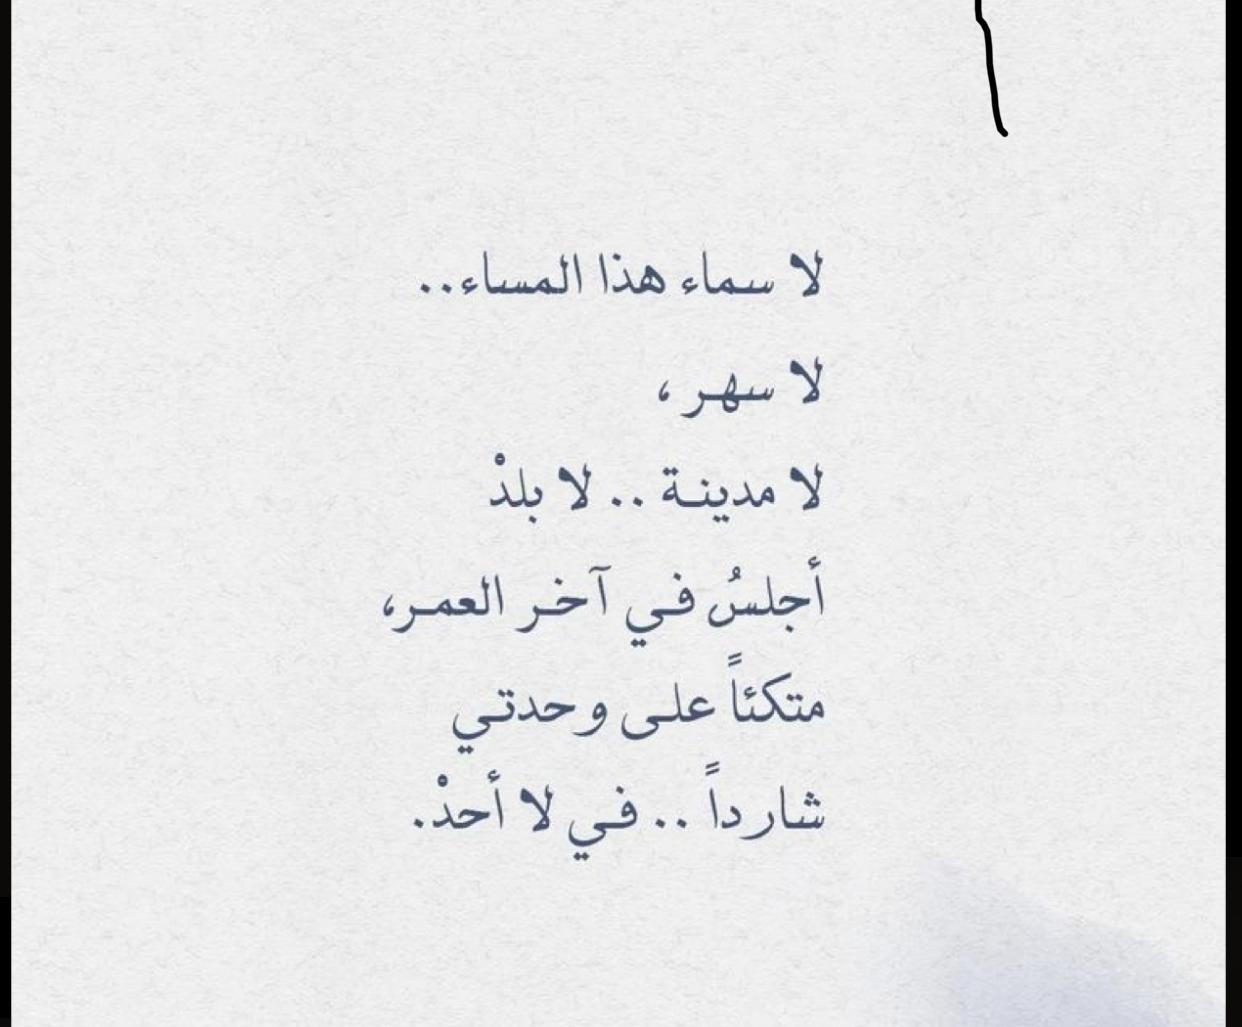 لا سماء هذا المساء..
لا سهر ،
لا مدينة .. لا بلدْ
أجلسُ في آخر العمر،
متكئاً على وحدتي
شارداً .. في لا أحدْ.